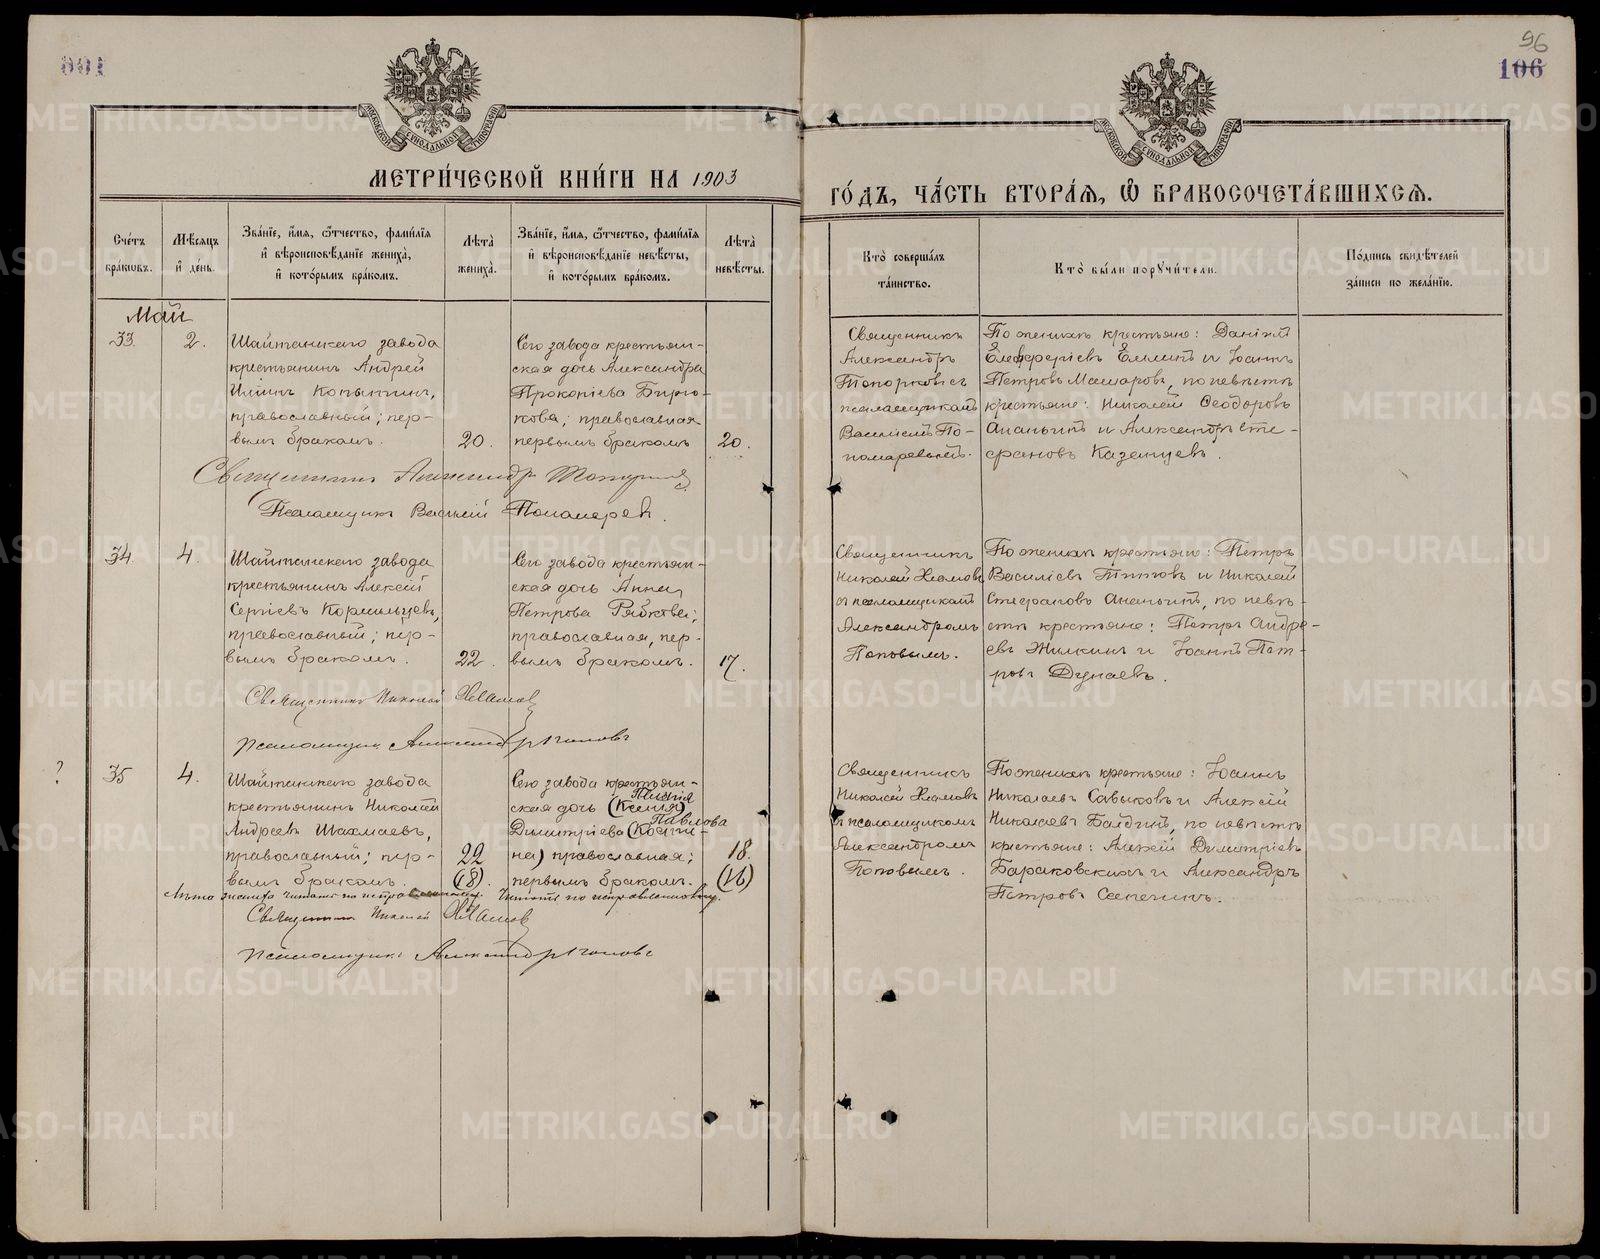 96
106
МЕТРИ́ЧЕСКОЙ КНИ́ГИ НА 1903
ГО́ДЪ, ЧА́СТЬ ВТОРА́Я, Ѽ БРАКОСОЧЕТА́ВШИХСЯ.
Сче́тъ бра́ковъ.
Мѣ́сяцъ и҆ де́нь.
Зва́нїе, и҆́мя, ѻ҆́тчество, фами́лїя и҆ вѣроисповѣ́данїе жениха̀, и҆ кото́рымъ бра́комъ.
Лѣ́та жениха̀.
Зва́нїе, и҆́мя, ѻ҆́тчество, фами́лїя и҆ вѣроисповѣ́данїе невѣ́сты, и҆ кото́рымъ бра́комъ.
Лѣ́та невѣ́сты.
Кто̀ соверша́лъ та́инство.
Кто̀ бы́ли порꙋчи́тели.
По́дпись свидѣ́телей за́писи по жела́нїю.
Май
33.
2.
Шайтанскаго завода
крестьянинъ Андрей
Илiинъ Копыткинъ,
православный; пер-
вымъ бракомъ.
20.
Сего завода крестьян-
ская дочь Александра
Прокопiева Бирю-
кова; православная
первымъ бракомъ
20.
Священникъ
Александръ
Топорковъ съ
псаломщикомъ
Василiемъ По-
номаревымъ.
По женихѣ крестьяне: Данiилъ
Елевферiевъ Ёлкинъ и Iоаннъ
Петровъ Машаровъ, по невѣстѣ
крестьяне: Николай Ѳеодоровъ
Ананьинъ и Александръ Сте-
фановъ Казанцевъ.
Священникъ Александръ Топорковъ
Псаломщикъ Василiй Пономаревъ.
34.
4.
Шайтанскаго завода
крестьянинъ Алексѣй
Сергiевъ Кормильцевъ,
православный; пер-
вымъ бракомъ.
22.
Сего завода крестьян-
ская дочь Анна
Петрова Рябкова;
православная, пер-
вымъ бракомъ.
17.
Священникъ
Николай Хламовъ
съ псаломщикомъ
Александромъ
Поповымъ.
По женихѣ крестьяне: Петръ
Василiевъ Титовъ и Николай
Стефановъ Ананьинъ, по невѣ-
стѣ крестьяне: Петръ Андре-
евъ Жилкинъ и Iоаннъ Пет-
ровъ Дунаевъ.
Священникъ Николай Хламовъ
псаломщикъ Александръ Поповъ
?
35
4.
Шайтанскаго завода
крестьянинъ Николай
Андреевъ Шахмаевъ,
православный; пер-
вымъ бракомъ.
22
(18).
Сего завода крестьян-
ская дочь (Ксенiя)
Димитрiева (Кости-
на) православная;
первымъ бракомъ.
Павлова
18.
(16)
Священникъ
Николай Хламовъ
съ псаломщикомъ
Александромъ
Поповымъ.
По женихѣ крестьяне: Iоаннъ
Николаевъ Савыковъ и Алексѣй
Николаевъ Балдинъ, по невѣстѣ
крестьяне: Алексѣй Димитрiевъ
Бараковскихъ и Александръ
Петровъ Сапегинъ.
Лѣта жениха читать по исправленному. Читать по исправленному.
Священникъ Николай Хламовъ
псаломщикъ Александръ Поповъ
METRIKI.GASO-URAL.RU